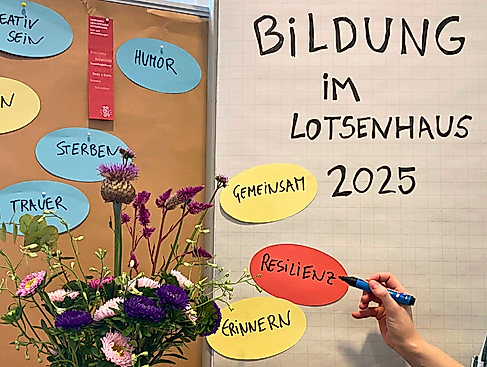 EATIV
SEIN
HUMOR
N
STERBEN
TRAUER
BiLDUNG
iM
LOTSENHAUS
2025
GEMEINSAM
RESILIENZ
ERINNERN